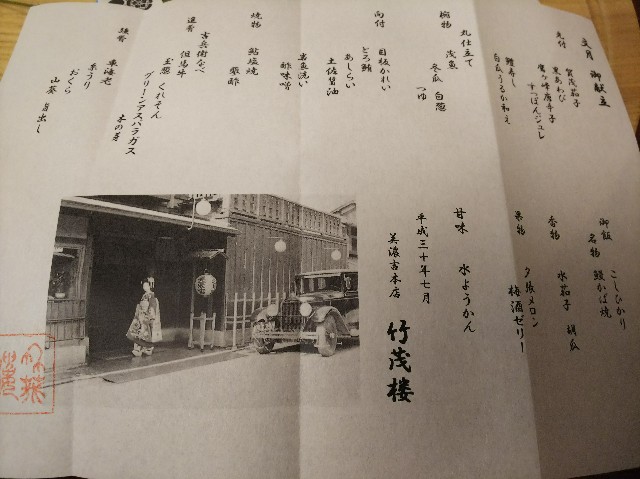 文月 御献立
先付
賀茂茄子
黒あわび
鷹ヶ峰唐辛子
すっぽんジュレ
鱧寿し
白瓜うるか和え
椀物
丸仕立て
浅魚
冬瓜 白葱
つゆ
向付
目板かれい
とろ鮪
あしらい
土佐醤油
洗い
酢味噌
焼物
鮎塩焼
蓼酢
進肴
古兵衛なべ
但馬牛
玉葱 くれそん
グリーンアスパラガス
木の芽
鉢肴
車海老
糸うり
おくら
山葵 旨出し
御飯
こしひかり
名物 鰻かば焼
香物
水茄子 胡瓜
果物
夕張メロン
梅酒ゼリー
甘味
水ようかん
平成三十年七月
美濃吉本店 竹茂楼